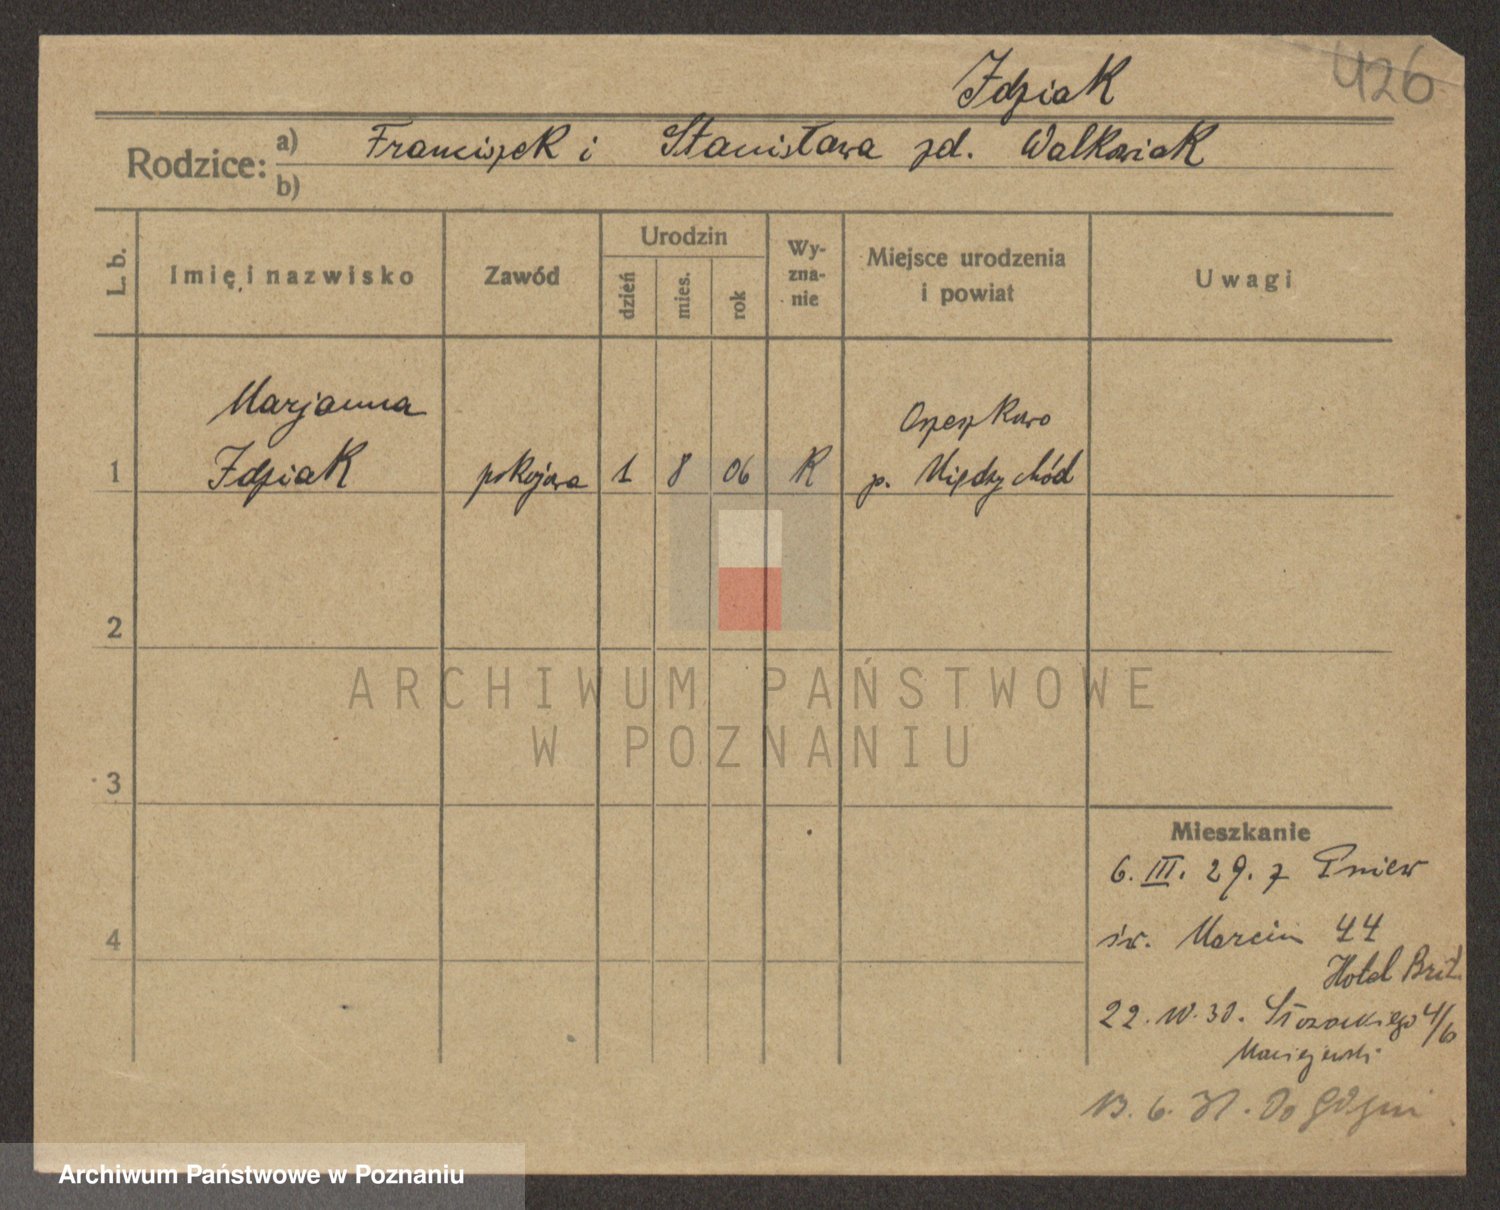 426
Idziak
Rodzice: a) Franciszek i Stanisława zd. Walkowiak
b)
L. b.
Imię i nazwisko
Zawód
Urodzin
dzień
mies.
rok
Wy-
zna-
nie
Miejsce urodzenia
i powiat
Uwagi
Marjanna
Idziak
1
pokojowa
1 8 06
R
p. Międzychód
2
3
4
ARCHIWUM PAŃSTWOWE
W POZNANIU
Mieszkanie
6. III. 29. z Pniew
św. Marcin 44
Hotel Brit.
22. 30. Słowackiego 4/6
Maciejewski
13. 6. 31. Do Gdyni
Archiwum Państwowe w Poznaniu